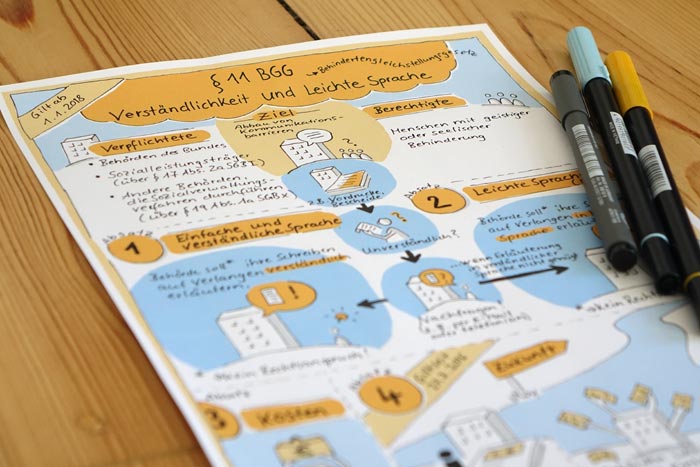 Gilt ab
1.1.2018
§ 11 BGG
Behindertengleichstellungsgesetz
Verständlichkeit und Leichte Sprache
Verpflichtete
• Behörden des Bundes
• Sozialleistungsträger
(über § 17 Abs. 2a SGB I)
• Andere Behörden,
die Sozialverwaltungs-
verfahren durchführen
(über § 19 Abs. 1a SGB X)
Ziel
Abbau von
Kommunikations-
barrieren
z.B. Vordrucke,
Bescheide
Berechtigte
Menschen mit geistiger
oder seelischer
Behinderung
Absatz
1
Einfache und
verständliche Sprache
Behörde soll* ihre Schreiben
auf Verlangen verständlich
erläutern.
!
*kein Rechtsanspruch!
?
Unverständlich?
?
Nachfragen
(z.B. per E-Mail
oder telefonisch)
Absatz
2
Leichte Sprache
Behörde soll* ihre
auf Verlangen in
Sprache
...wenn Erläuterung
in verständlicher
Sprache nicht genügt
*kein
3
Kosten
Absatz
4
Zukunft